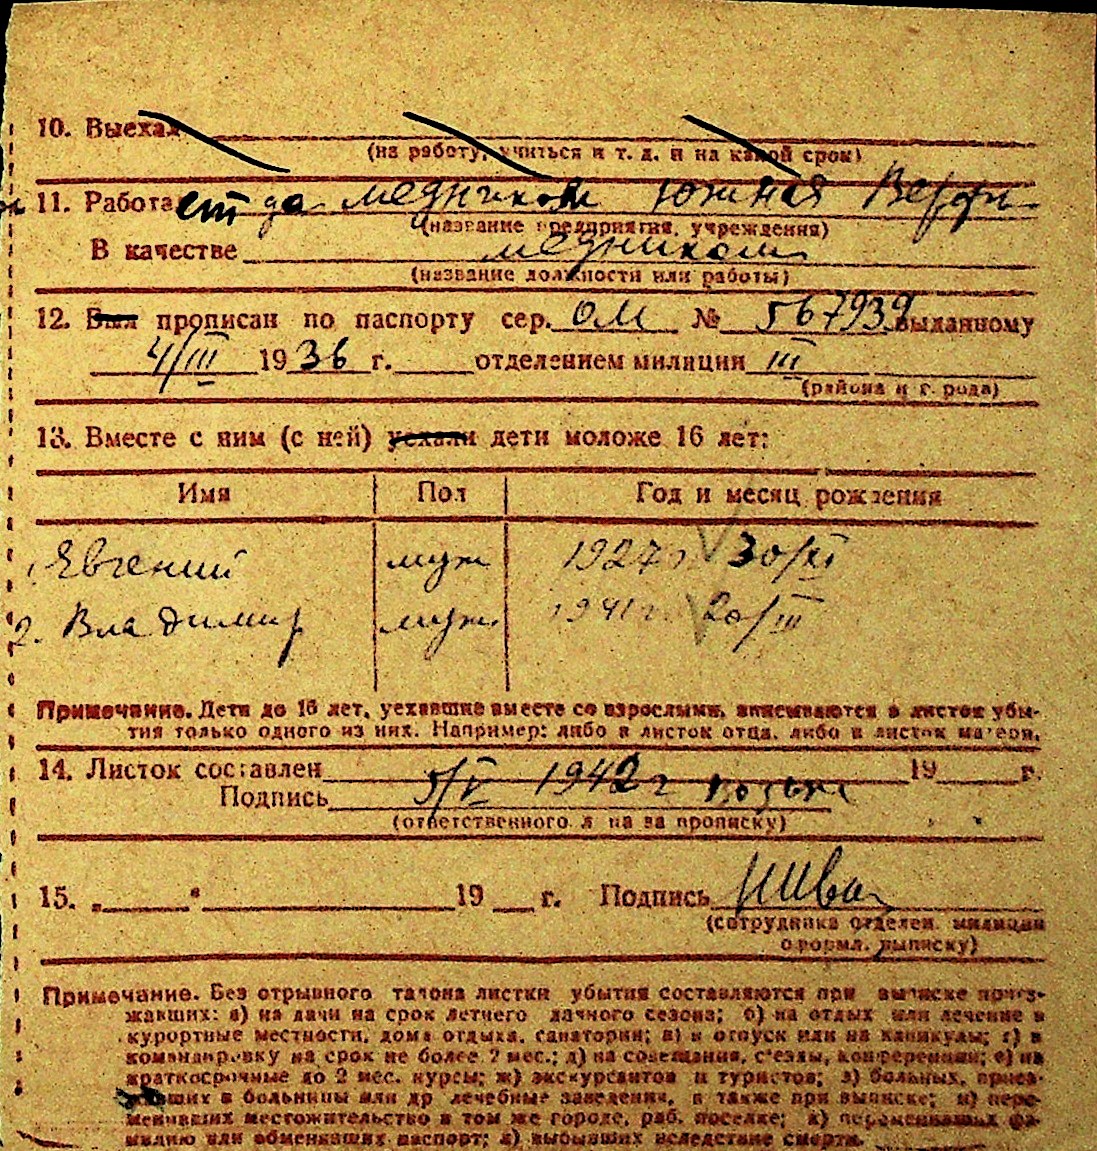 10. Выехал
(на работу, учиться и т. д. и на какой срок)
11. Работает да медником Южная Верфь
(название предприятия, учреждения)
В качестве медником
(название должности или работы)
12. Был прописан по паспорту сер. ОМ № 567939 выданному
4/III 1936 г. отделением милиции III
(района и города)
13. Вместе с ним (с ней) уехали дети моложе 16 лет:
Имя Пол Год и месяц рождения
1. Евгений муж 1927г 30/XI
2. Владимир муж. 1941г. 20/III
Примечание. Дети до 16 лет, уехавшие вместе со взрослыми, вписываются в листок убы-
тия только одного из них. Например: либо в листок отца, либо в листок матери.
14. Листок составлен 5/V 1942г 19 г.
Подпись
(ответственного лица за прописку)
15. „ " 19 г. Подпись
(сотрудника отделен. милиции
оформл. выписку)
Примечание. Без отрывного талона листки убытия составляются при выписке приез-
жавших: а) на дачи на срок летнего дачного сезона; б) на отдых или лечение в
курортные местности, дома отдыха, санатории; в) в отпуск или на каникулы; г) в
командировку на срок не более 2 мес.; д) на совещания, съезды, конференции; е) на
краткосрочные до 2 мес. курсы; ж) экскурсантов и туристов; з) больных, приез-
жавших в больницы или др лечебные заведения, а также при выписке; и) пере-
менивших местожительство в том же городе, раб. поселке; к) переменивших фа-
милию или обменявших паспорт; л) выбывших вследствие смерти.